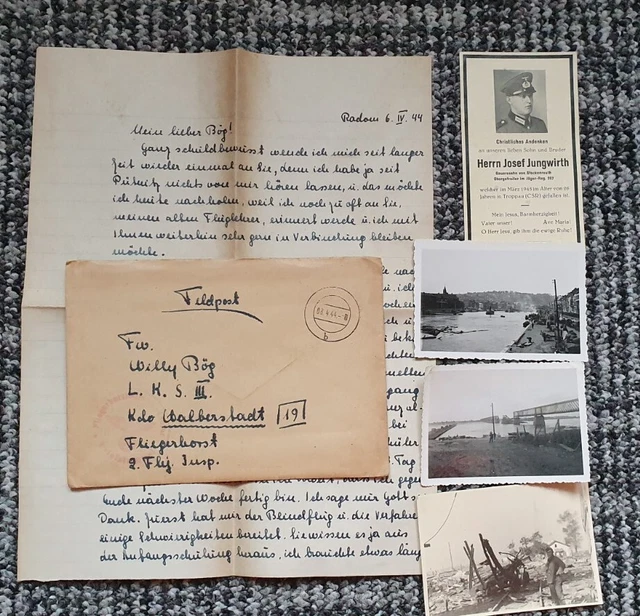 Radom 6. IV. 44
Mein lieber Bög!
Ganz schuldbewusst wende ich mich seit langer
Zeit wieder einmal an Sie, denn ich habe ja seit
Pütnitz nichts von mir hören lassen, u. das möchte
ich heute nachholen, weil ich noch zu oft an Sie,
meinen alten Fluglehrer, erinnert werde u. ich mit
Ihnen weiterhin sehr gern in Verbindung bleiben
möchte.
Feldpost
Fw.
Willy Bög
L. K. S. III.
Kdo Halberstadt 19
Fliegerhorst
2. Flg. Insp.
Tag
Ende nächster Woche fertig bin. Ich sage mir Gott s
Dank. Zuerst hat mir der Blindflug u. die Verfahre
einige Schwierigkeiten bereitet. Sie wissen es ja aus
der Anfangsschulung heraus, ich brauchte etwas läng
Christliches Andenken
an unseren lieben Sohn und Bruder
Herrn Josef Jungwirth
Obergefreiter im Jäger-Reg.
welcher im März 1945 im Alter von
Jahren in Troppau (CSR) gefallen ist.
Mein Jesus, Barmherzigkeit!
Vater unser! Ave Maria!
O Herr gib ihm die ewige Ruhe!